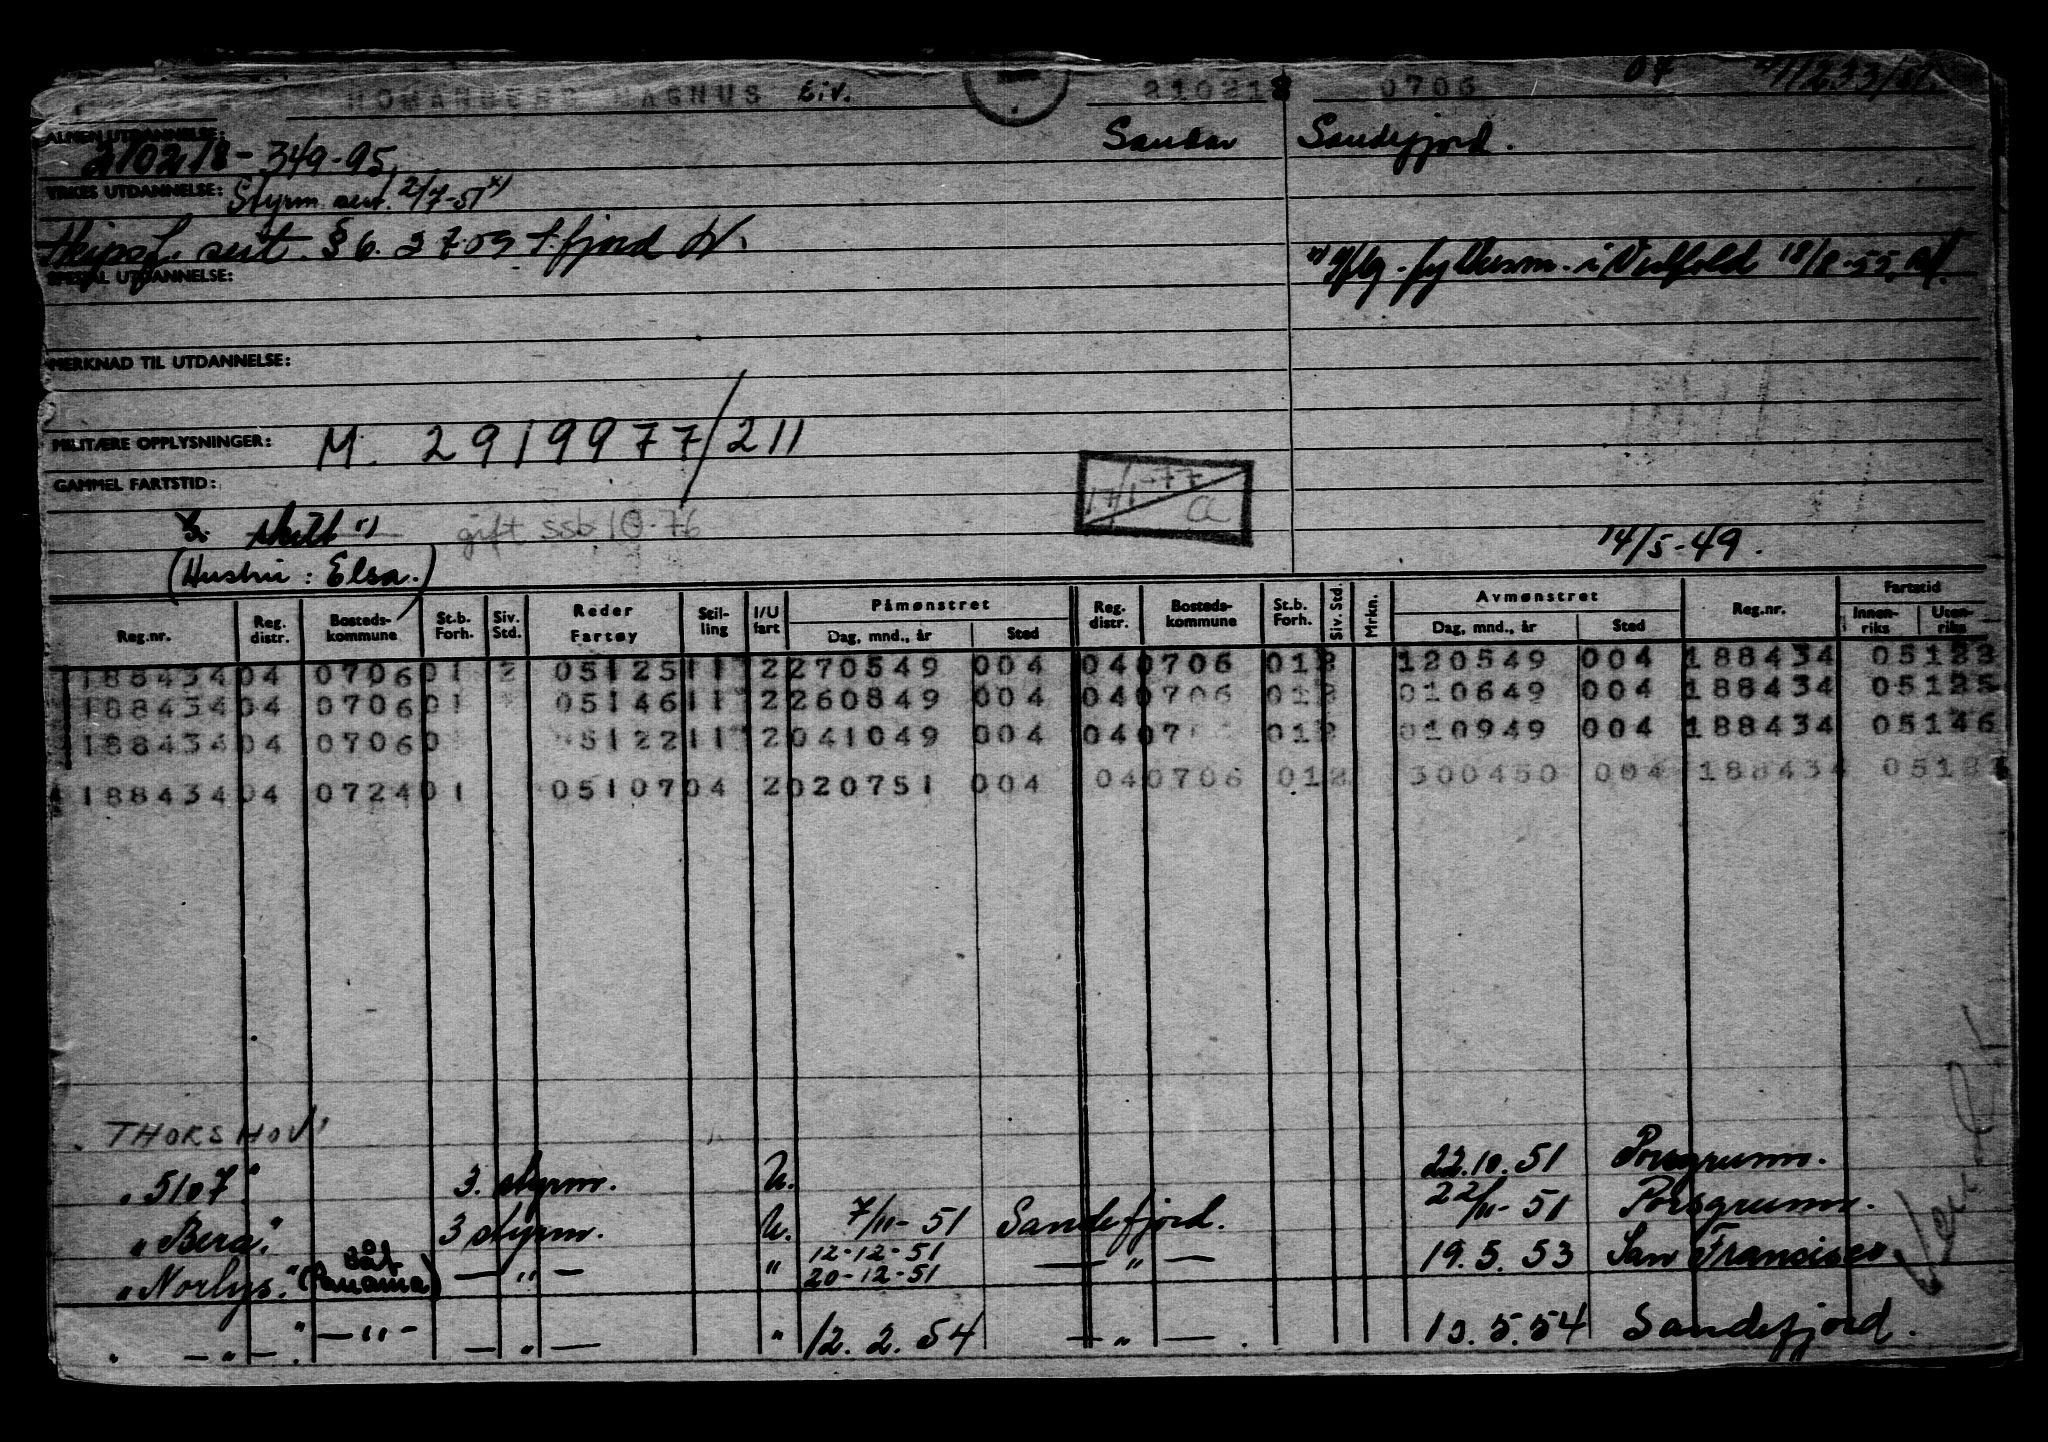 MAGNUS Eiv. 210218 0706 04
ALMEN UTDANNELSE: Sandar Sandefjord.
210218-349-95
YRKES UTDANNELSE: Styrm. sert. 2/7-51 x)
sert. § 6. S.fjord
SPESIAL UTDANNELSE: fylkesm. i Vestfold 18/8-55.
MERKNAD TIL UTDANNELSE:
MILITÆRE OPPLYSNINGER: M. 2919977/211
GAMMEL FARTSTID: 17/1-77
skilt gift ssb 10-76
14/5-49.
(Hustru: Elsa.)
Reg.nr. Reg. distr. Bosteds- kommune St.b. Forh. Siv. Std. Reder Fartøy Stil- ling I/U fart Påmønstret Dag, mnd., år Sted Reg. distr. Bosteds- kommune St.b. Forh. Siv. Std. Mrkn. Avmønstret Dag, mnd., år Sted Reg.nr. Fartstid Innen- riks Uten- riks
188434 04 0706 01 2 05125 11 2 270549 004 04 0706 01 2 120549 004 188434 05123
188434 04 0706 01 05146 11 2 260849 004 04 0706 01 2 010649 004 188434 05125
188434 04 0706 0 5122 11 2 041049 004 04 07 01 2 010949 004 188434 05146
188434 04 0724 01 05107 04 2 020751 004 04 0706 01 2 300450 004 188434 0512
THORSHOV
"5107" 3. styrm. U. 22.10.51 Porsgrunn.
"Bera." 3 styrm. U. 7/11-51 Sandefjord. 22/11-51 Porsgrunn.
"Norlys." (Panama) — " — " 12-12-51 — " — 19.5.53 San Francisco
20-12-51
" — " — . " — " — — " — " 12.2.54 — " — . 13.5.54 Sandefjord.